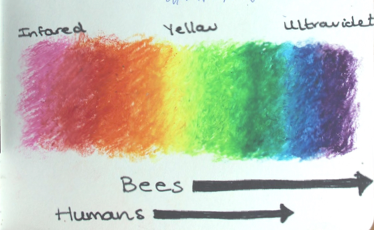 Infared Yellow Ultraviolet
Bees
Humans